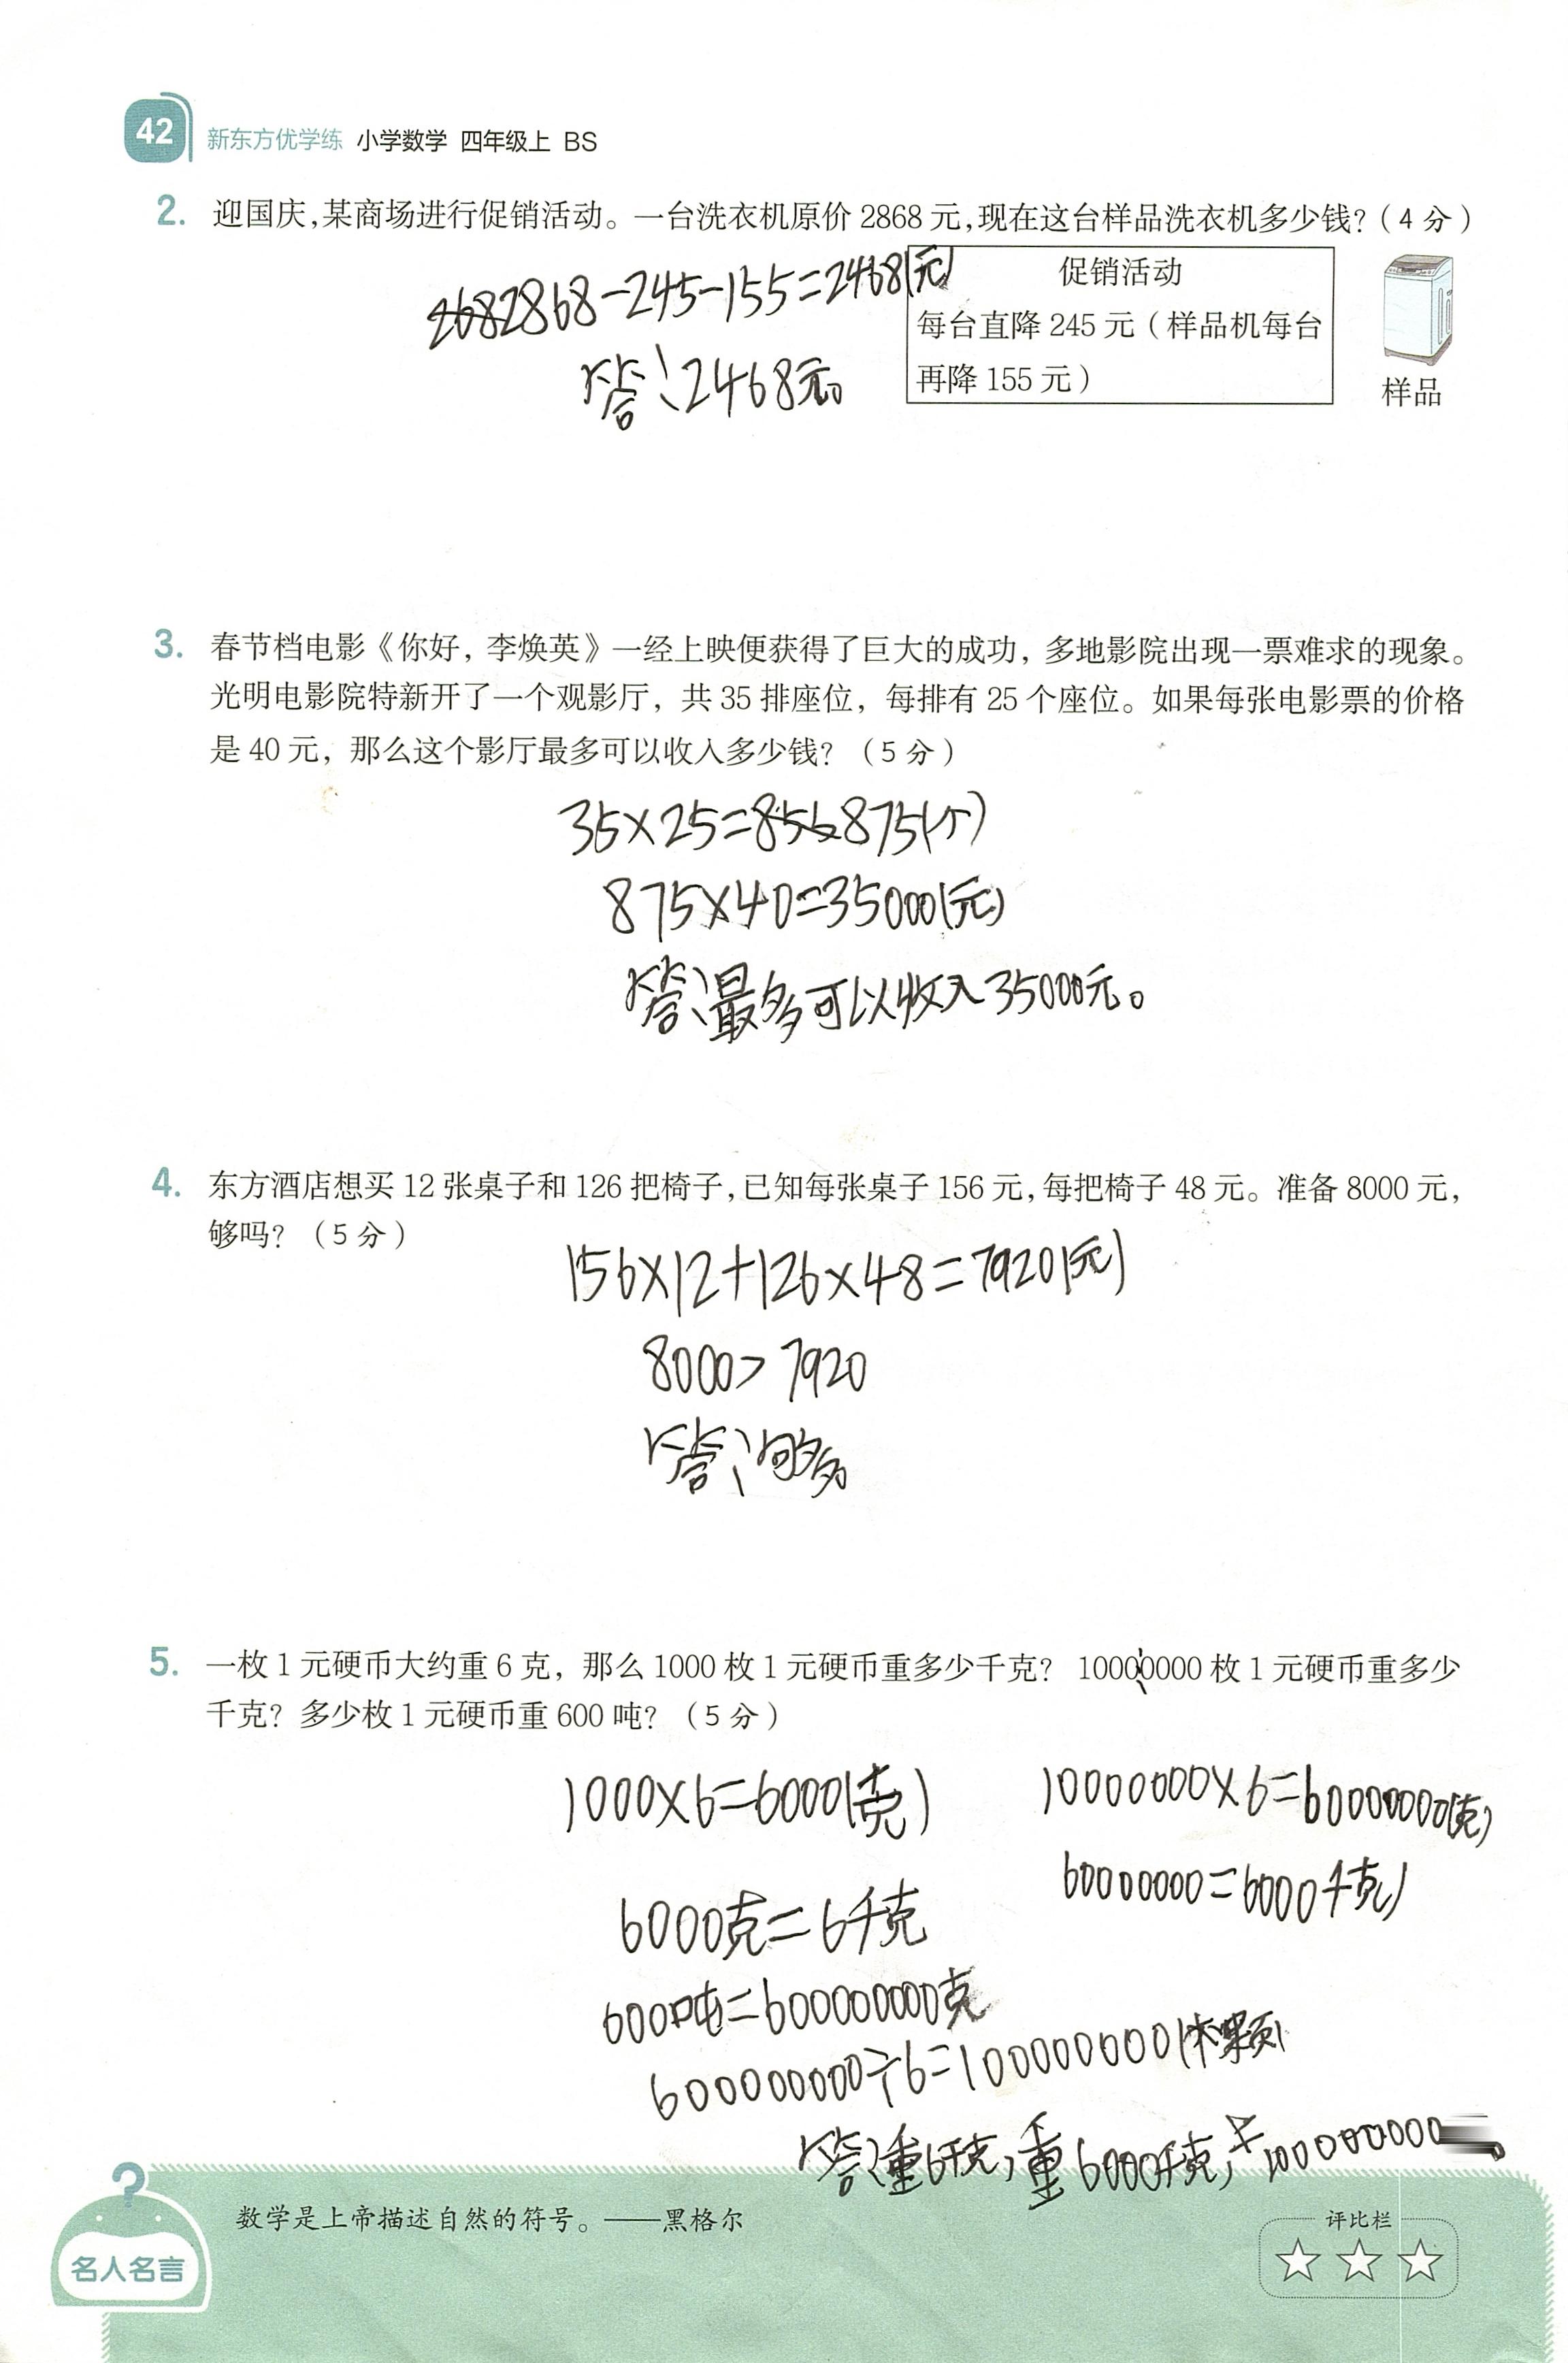 42 新东方优学练 小学数学 四年级上 BS
2. 迎国庆,某商场进行促销活动。一台洗衣机原价 2868 元,现在这台样品洗衣机多少钱?(4 分)
2868-245-155=2468(元)
答:2468元。
促销活动
每台直降 245 元(样品机每台
再降 155 元)
样品
3. 春节档电影《你好,李焕英》一经上映便获得了巨大的成功,多地影院出现一票难求的现象。
光明电影院特新开了一个观影厅,共 35 排座位,每排有 25 个座位。如果每张电影票的价格
是 40 元,那么这个影厅最多可以收入多少钱?(5 分)
35×25=875(个)
875×40=35000(元)
答:最多可以收入35000元。
4. 东方酒店想买 12 张桌子和 126 把椅子,已知每张桌子 156 元,每把椅子 48 元。准备 8000 元,
够吗?(5 分)
156×12+126×48=7920(元)
8000>7920
答:够
5. 一枚 1 元硬币大约重 6 克,那么 1000 枚 1 元硬币重多少千克? 10000000 枚 1 元硬币重多少
千克?多少枚 1 元硬币重 600 吨?(5 分)
1000×6=6000(克)
10000000×6=60000000(克)
60000000=6000千克)
6000克=6千克
600吨=600000000克
600000000÷6=100000000(颗)
答:重6千克,重6000千克,100000000
数学是上帝描述自然的符号。——黑格尔
名人名言
评比栏